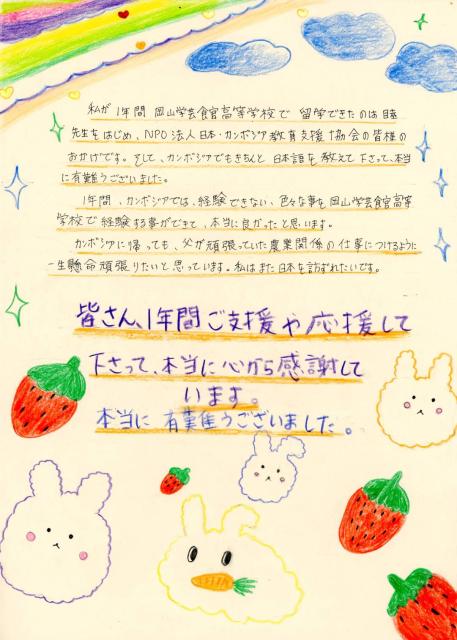 私が1年間 岡山学芸館高等学校で 留学できたのは 睦
先生をはじめ、NPO法人日本・カンボジア教育支援協会の皆様の
おかげです。そして、カンボジアでもきちんと 日本語を 教えて 下さって、本当
に有難うございました。
1年間、カンボジアでは、経験できない、色々な事を岡山学芸館高等
学校で 経験する事ができて、本当に良かったと思います。
カンボジアに帰っても、父が頑張っていた農業関係の仕事につけるように
一生懸命頑張りたいと思っています。私はまた日本を訪ずれたいです。
皆さん、1年間ご支援や応援して
下さって、本当に心から感謝して
います。
本当に 有難うございました。